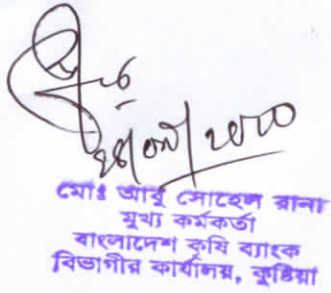 মোঃ আবু সোহেল রানা
মুখ্য কর্মকর্তা
বাংলাদেশ কৃষি ব্যাংক
বিভাগীর কার্যালয়, কুষ্টিয়া